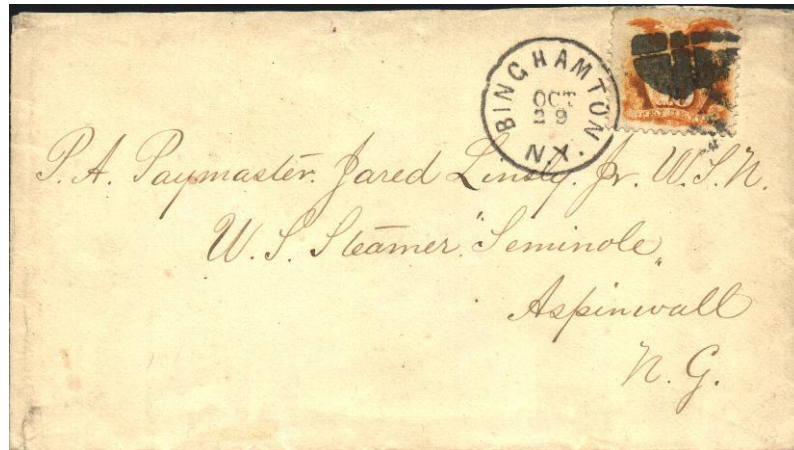 BINGHAMTON.
OCT
29
N.Y.
P. A. Paymaster. Jared Linsly. Jr. U.S.N.
U.S. Steamer "Seminole"
Aspinwall
N. G.